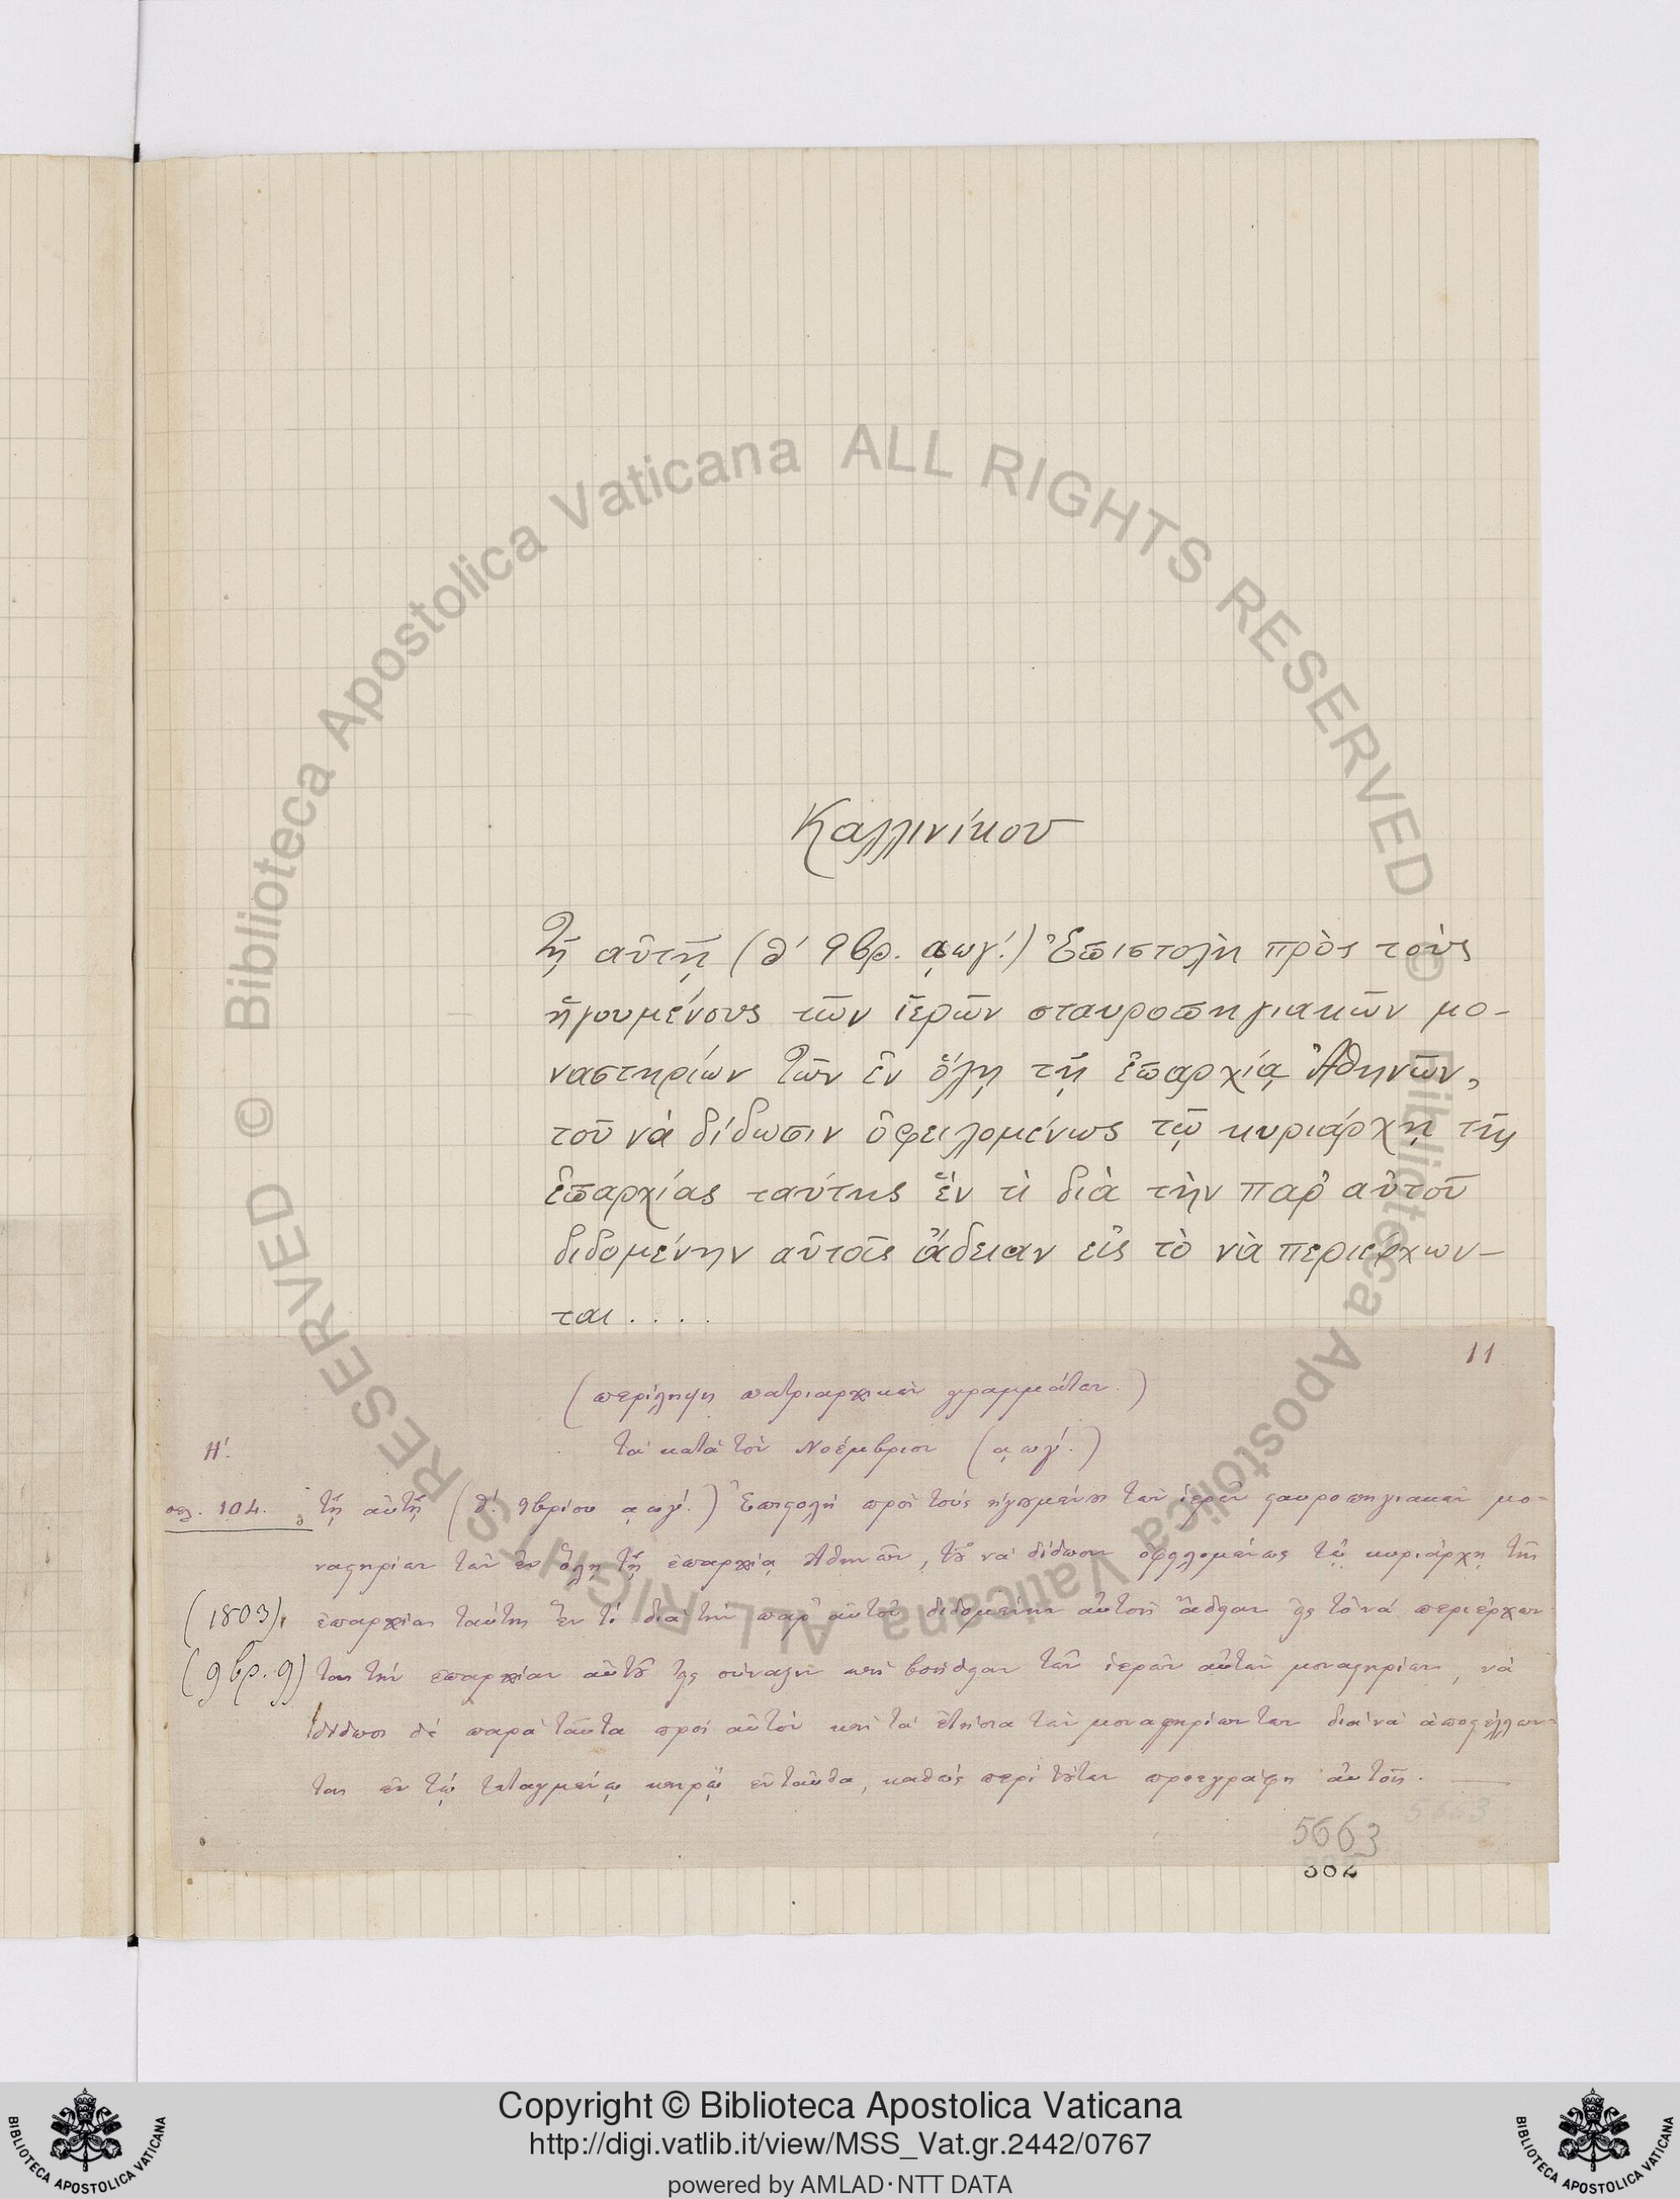 Καλλινίκου
Τῇ αὐτῇ (θ΄ 9βρ. ͵αωγ΄.) Ἐπιστολὴ πρὸς τοὺς
ἡγουμένους τῶν ἱερῶν σταυροπηγιακῶν μο-
ναστηρίων τῶν ἐν ὅλῃ τῇ ἐπαρχίᾳ Ἀθηνῶν,
τοῦ νὰ δίδωσιν ὀφειλομένως τῷ κυριάρχῃ τῆς
ἐπαρχίας ταύτης ἕν τι διὰ τὴν παρ' αὐτοῦ
διδομένην αὐτοῖς ἄδειαν εἰς τὸ νὰ περιέρχων-
ται . . . .
11
(περίληψη πατριαρχικῶν γραμμάτων.)
Η΄. τὰ κατὰ τὸν Νοέμβριον (͵αωγ΄.)
σελ. 104. τῇ αὐτῇ (θ΄. 9βρίου ͵αωγ΄.) Ἐπιστολὴ πρὸς τοὺς ἡγουμένους τῶν ἱερῶν σταυροπηγιακῶν μο-
ναστηρίων τῶν ἐν ὅλῃ τῇ ἐπαρχίᾳ Ἀθηνῶν, τοῦ νὰ δίδωσιν ὀφειλομένως τῷ κυριάρχῃ τῆς
(1803), ἐπαρχίας ταύτης ἕν τι διὰ τὴν παρ' αὐτοῦ διδομένην αὐτοῖς ἄδειαν εἰς τὸ νὰ περιέρχων-
(9βρ. 9) ται τὴν ἐπαρχίαν αὐτοῦ εἰς σύναξιν καὶ βοήθειαν τῶν ἱερῶν αὐτῶν μοναστηρίων, νὰ
δίδωσι δὲ παρὰ ταῦτα πρὸς αὐτὸν καὶ τὰ ἐτήσια τῶν μοναστηρίων των διὰ νὰ ἀποστέλλων-
ται ἐν τῷ τεταγμένῳ καιρῷ ἐνταῦθα, καθὼς περὶ τούτων προεγράφη αὐτοῖς.
5663
5663
382
© Biblioteca Apostolica Vaticana ALL RIGHTS RESERVED
© Biblioteca Apostolica Vaticana ALL RIGHTS RESERVED
Copyright © Biblioteca Apostolica Vaticana
http://digi.vatlib.it/view/MSS_Vat.gr.2442/0767
powered by AMLAD·NTT DATA
BIBLIOTECA APOSTOLICA VATICANA
BIBLIOTECA APOSTOLICA VATICANA